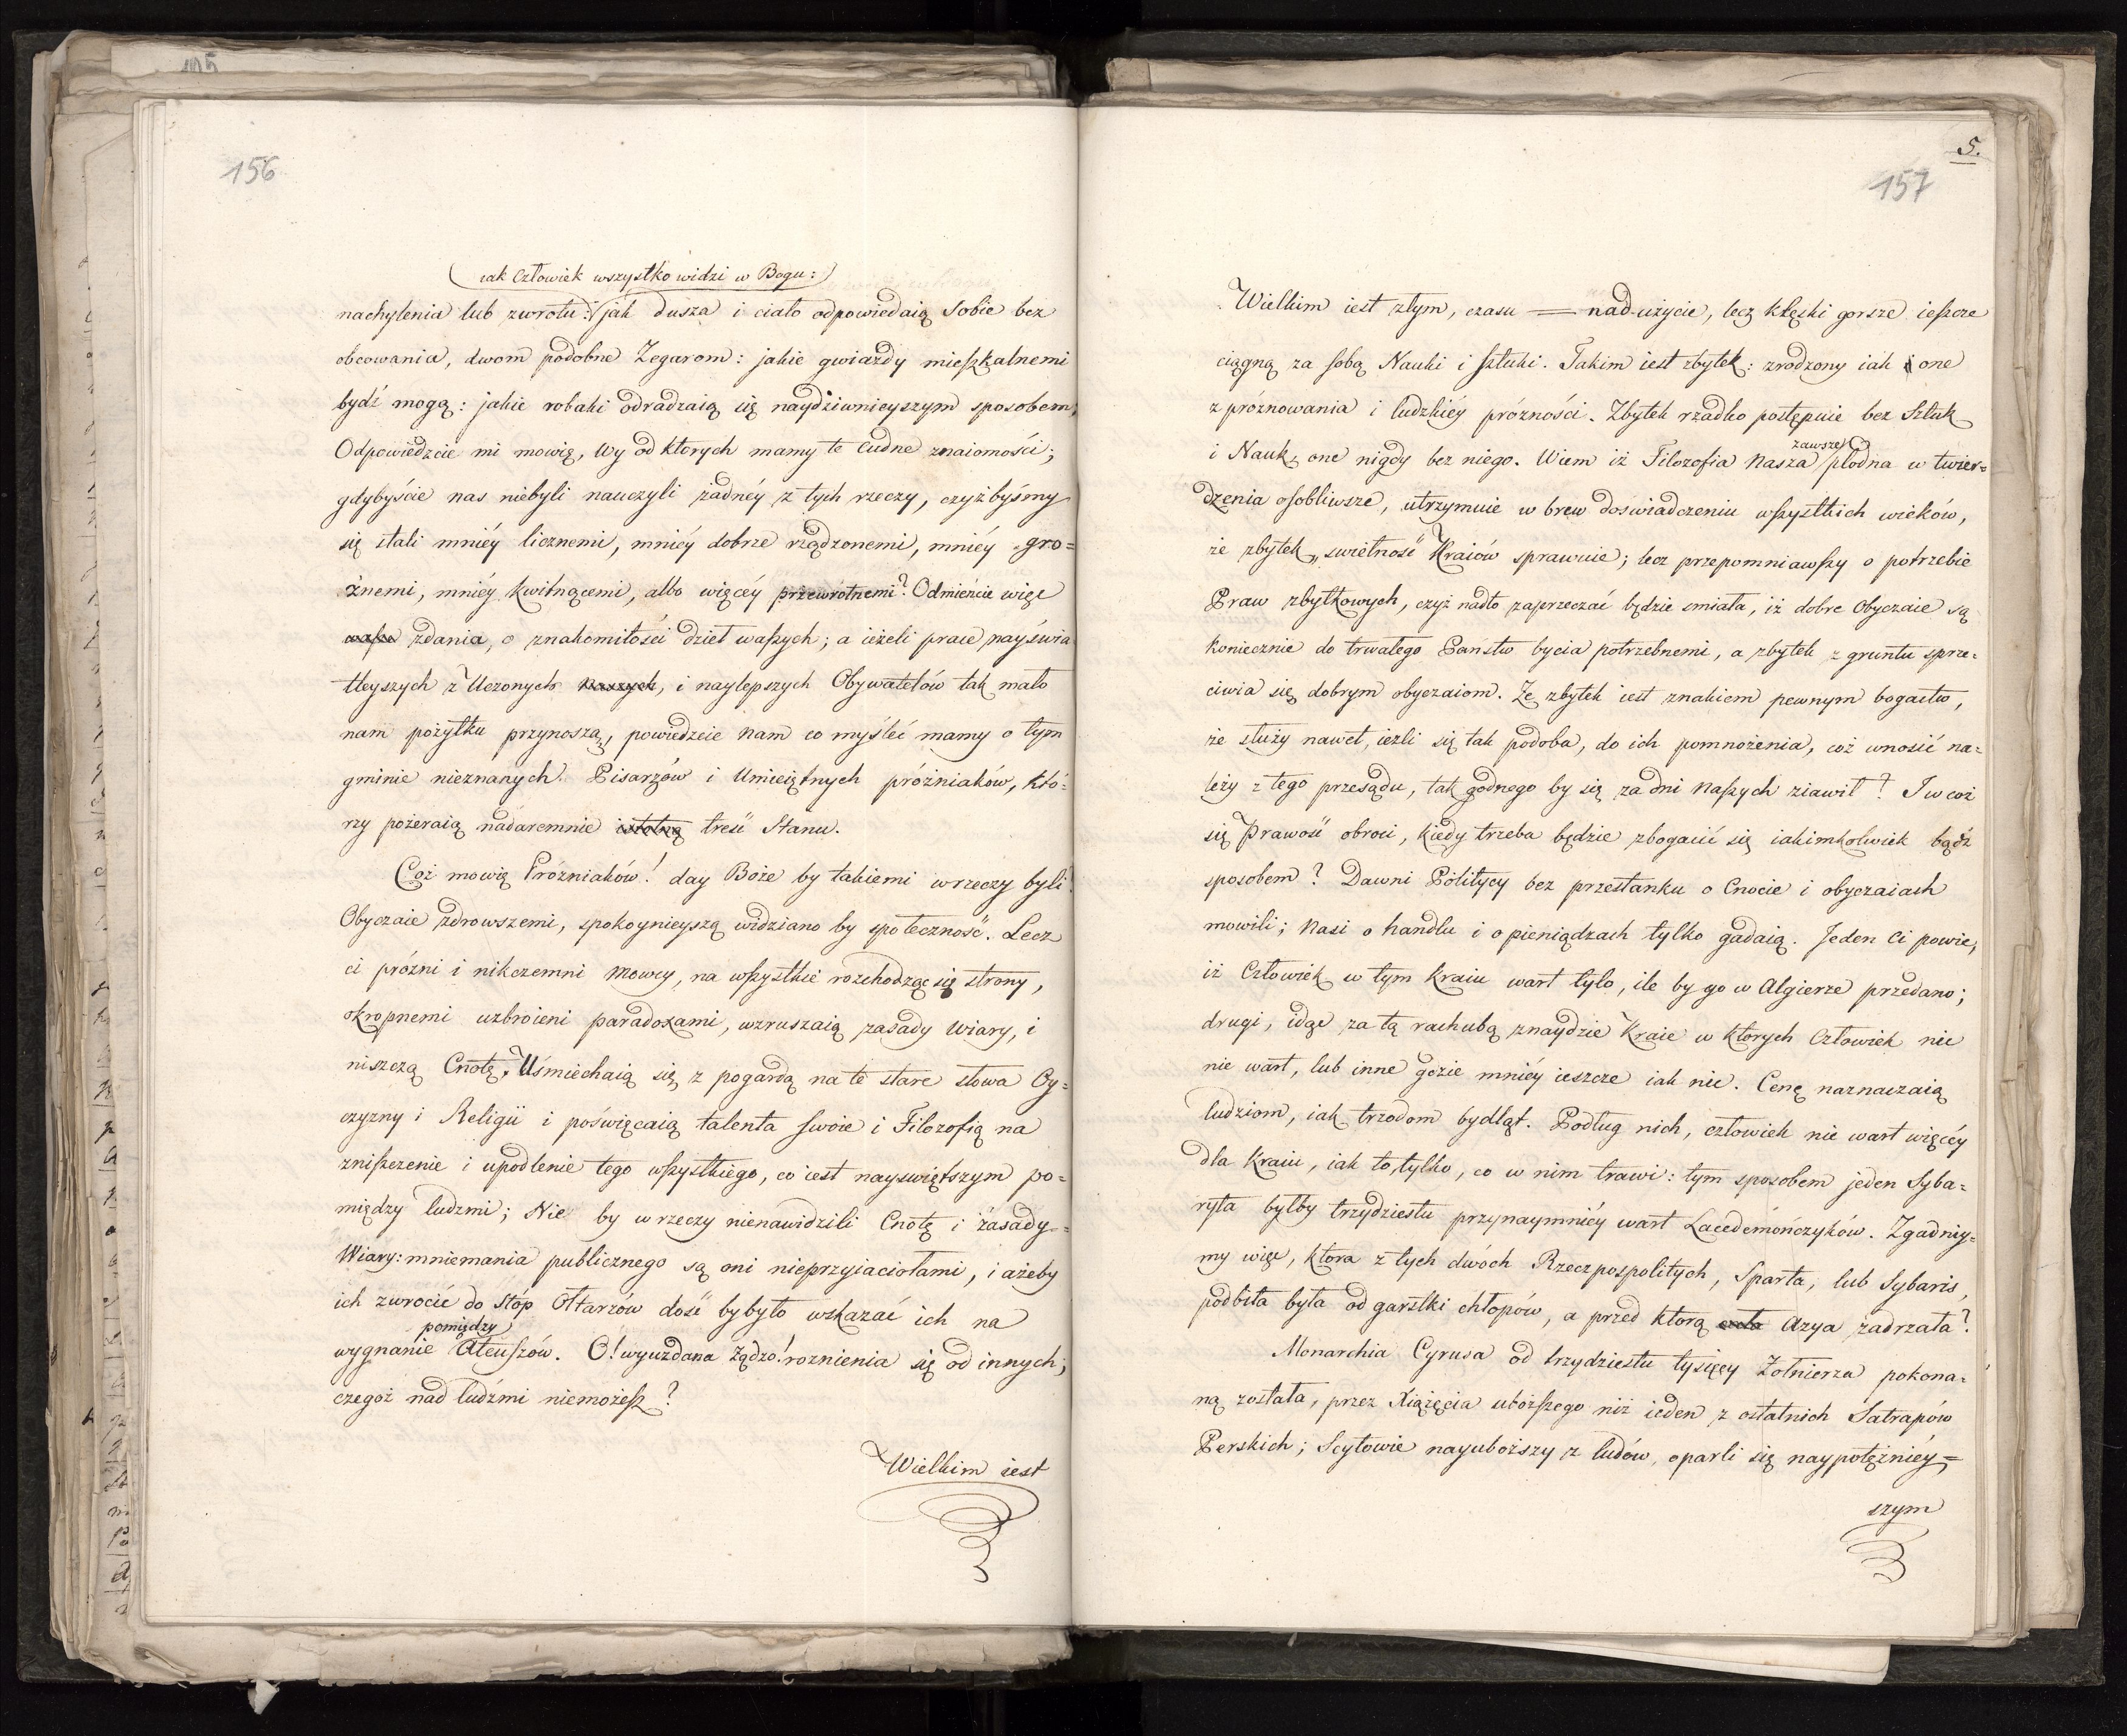 156
(iak Człowiek wszystko widzi w Bogu:)
nachylenia lub zwrotu: jak dusza i ciało odpowiedaią sobie bez
obcowania, dwom podobne Zegarom: jakie gwiazdy mieſzkalnemi
bydź mogą: jakie robaki odradzaią się naydziwnieyszym sposobem,
Odpowiedzcie mi mowię, Wy od których mamy te cudne znaiomości;
gdybyście nas niebyli nauczyli żadnéy z tych rzeczy, czyżbyśmy
się stali mniéy licznemi, mniéy dobrze rządzonemi, mniéy gro=
źnemi, mniéy kwitnącemi, albo więcéy przewrotnemi? Odmieńcie więc
waſze zdania, o znakomitości dzieł waſzych; a ieżeli prace nayświa
tleyszych z Uczonych naszych, i naylepszych Obywatelów tak mało
nam pożytku przynoszą, powiedzcie nam co myśleć mamy o tym
gminie nieznanych Pisarzów i Umieiętnych próżniaków, któ=
rzy pożeraią nadaremnie istotną treść Stanu.
Cóż mowię Próżniaków! day Boże by takiemi w rzeczy byli!
Obyczaie zdrowszemi, spokoynieyszą widziano by społeczność. Lecz
ci próżni i nikczemni mowcy, na wſzystkie rozchodząc się strony,
okropnemi uzbroieni paradoxami, wzruszaią zasady wiary, i
niszczą Cnotę. Uśmiechaią się z pogardą na te stare słowa Oy=
czyzny i Religii i poświęcaią talenta swoie i Filozofią na
zniſzczenie i upodlenie tego wſzystkiego, co iest nayświętszym po=
między ludźmi; Nie by w rzeczy nienawidzili Cnotę i zasady
Wiary: mniemania publicznego są oni nieprzyiaciołami, i ażeby
ich zwrócić do stóp Ołtarzów dość by było wskazać ich na
pomiędzy
wygnanie Ateuſzów. O! wyuzdana żądzo! roznienia się od innych;
czegoż nad ludźmi niemożeſz?
Wielkim iest
5.
157
Wielkim iest złym, czasu = nad-użycie, lecz klęski gorsze ieſzcze
ciągną za sobą Nauki i Sztuki. Takim iest zbytek: zrodzony iak i one
z próżnowania i ludzkiéy próżności. Zbytek rzadko postępuie bez Sztuk
zawsze
i Nauk, one nigdy bez niego. Wiem iż Filozofia nasza płodna w twier=
dzenia osobliwsze, utrzymuie w brew doświadczeniu wſzystkich wieków,
że zbytek świetność Kraiów sprawuie; lecz przepomniawſzy o potrzebie
Praw zbytkowych, czyż nadto zaprzeczać będzie śmiała, iż dobre Obyczaie są
koniecznie do trwałego Państw bycia potrzebnemi, a zbytek z gruntu sprze=
ciwia się dobrym obyczaiom. Że zbytek iest znakiem pewnym bogactw,
że służy nawet, ieżli się tak podoba, do ich pomnożenia, coż wnosić na=
leży z tego przesądu, tak godnego by się za dni naſzych ziawił? I w coż
się Prawość obroci, kiedy trzeba będzie zbogacić się iakimkolwiek bądź
sposobem? Dawni Politycy bez przestanku o Cnocie i obyczaiach
mowili; nasi o handlu i o pieniądzach tylko gadaią. Jeden Ci powie,
iż Człowiek w tym kraiu wart tylo, ile by go w Algierze przedano;
drugi, idąc za tą rachubą znaydzie Kraie w których Człowiek nic
nie wart, lub inne gdzie mniéy ieszcze iak nic. Cenę naznaczaią
ludziom, iak trzodom bydląt. Podług nich, człowiek nie wart więcéy
dla Kraiu, iak to tylko, co w nim trawi: tym sposobem jeden Syba=
ryta byłby trzydziestu przynaymniéy wart Lacedemończyków. Zgadniy=
my więc, ktora z tych dwóch Rzeczpospolitych, Sparta, lub Sybaris,
podbita była od garstki chłopów, a przed ktorą cała Azya zadrzała?
Monarchia Cyrusa od trzydziestu tysięcy Żołnierza pokona=
ną została, przez Xiążęcia uboższego niż ieden z ostatnich Satrapów
Perskich; Scytowie nayuboższy z ludów, oparli się naypotężniéy=
szym